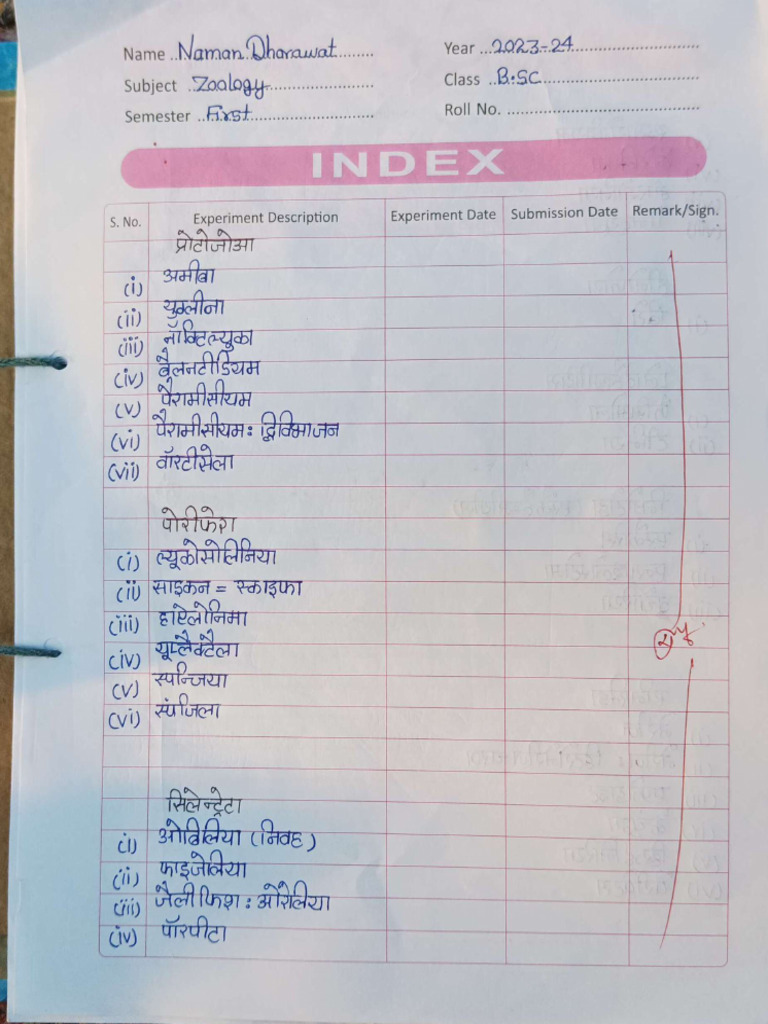 Name Naman Dharawat Year 2023-24
Subject Zoology Class B.SC
Semester First Roll No.
INDEX
S. No. Experiment Description Experiment Date Submission Date Remark/Sign.
प्रोटोजोआ
(i) अमीबा
(ii) युग्लीना
(iii) नॉक्टिल्युका
(iv) बैलनटीडियम
(v) पैरामीसीयम
(vi) पैरामीसीयम: द्विविभाजन
(vii) वॉरटीसेला
पोरीफेरा
(i) ल्यूकोसोलिनिया
(ii) साइकन = स्काइफा
(iii) हाऐलोनिमा
(iv) यूप्लैक्टैला
(v) स्पन्जिया
(vi) स्पंजिला
सिलेन्ट्रेटा
(i) ओबिलिया (निवह)
(ii) फाइजेलिया
(iii) जैलीफिश: ओरेलिया
(iv) पॉरपीटा